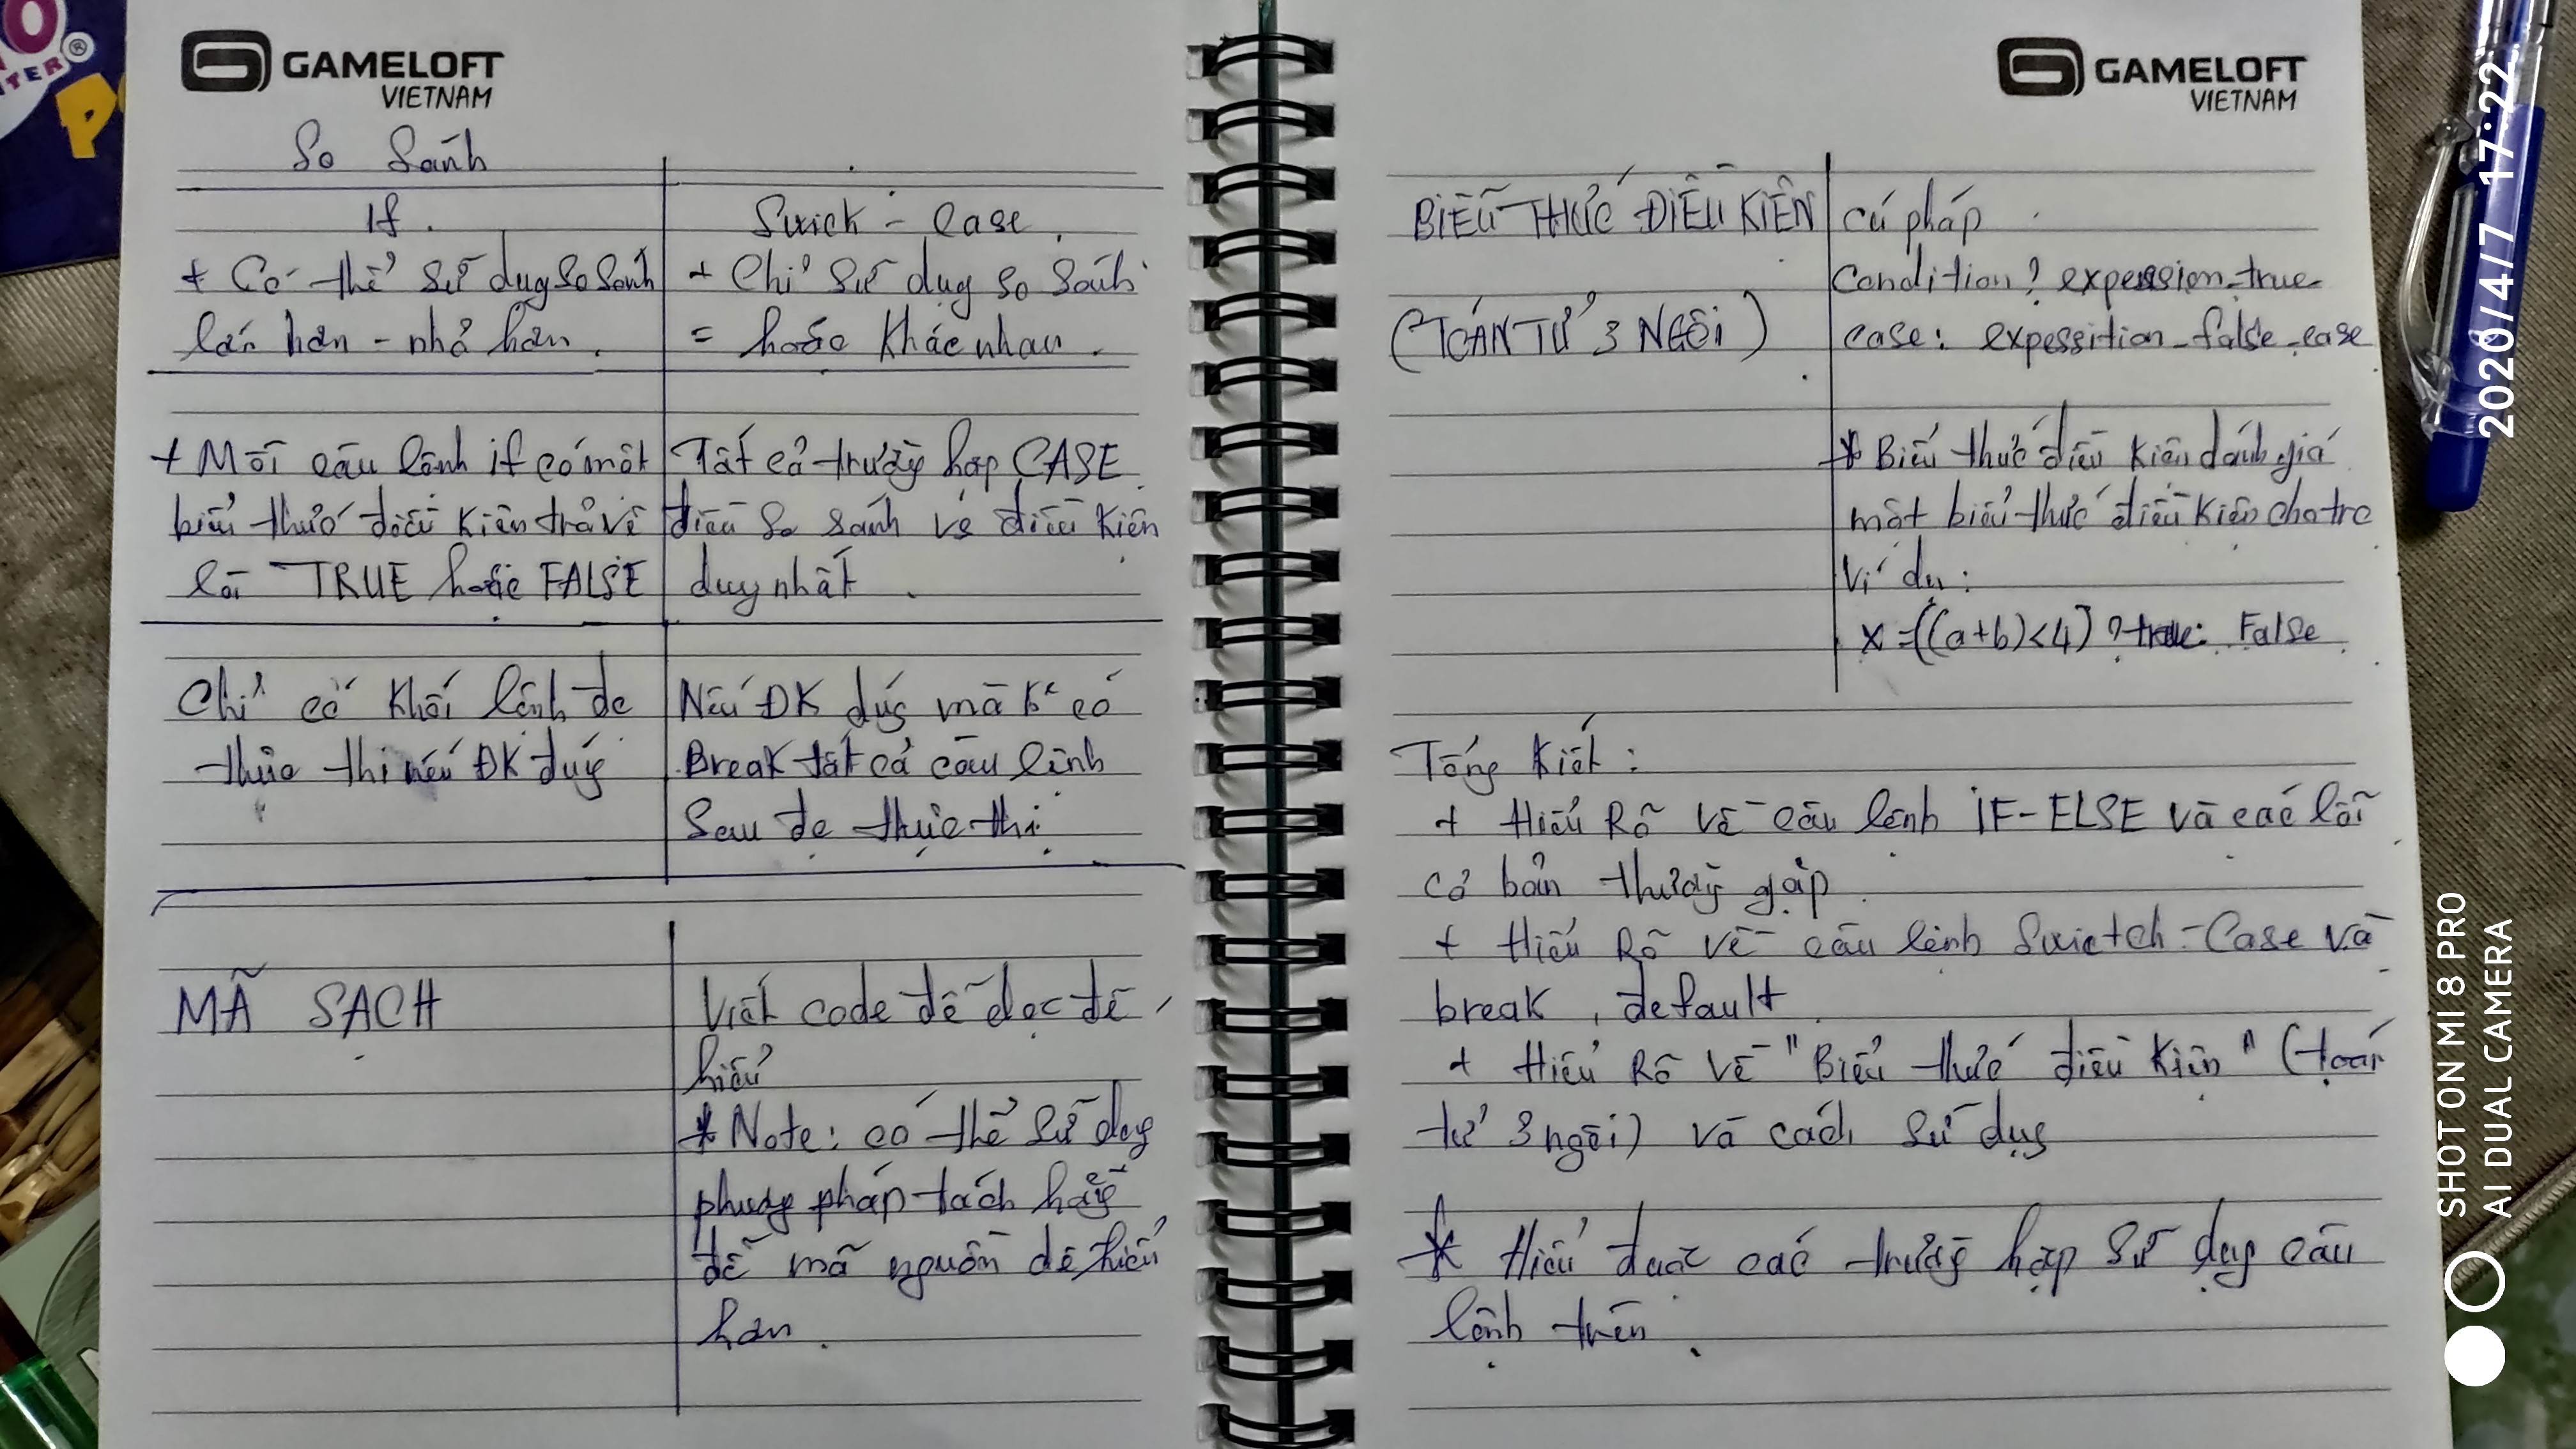 GAMELOFT
VIETNAM
So Sánh
If.
Swich - Case.
+ Có thể sử dụng so sánh
lớn hơn - nhỏ hơn.
+ Chỉ sử dụng so sánh
= hoặc Khác nhau.
+ Mỗi câu lệnh if có một
biểu thức điều Kiện trả về
là TRUE hoặc FALSE
Tất cả trường hợp CASE
điều so sánh vs điều Kiện
duy nhất.
Chỉ có Khối lệnh đc
thực thi nếu ĐK đúng
Nếu ĐK đúng mà K có
Break tất cả câu lệnh
Sau đc thực thi
MÃ SẠCH
Viết code dễ đọc dễ
hiểu
* Note: có thể sử dụng
phương pháp tách hàm
để mã nguồn dễ hiểu
hơn.
GAMELOFT
VIETNAM
BIỂU THỨC ĐIỀU KIỆN
(TOÁN TỬ 3 NGÔI)
cú pháp
Condition? expession_true_
case: expessition_false_case
* Biểu thức điều Kiện đánh giá
một biểu thức điều Kiện cho trc
Ví dụ:
x = ((a+b)<4) ? true: False
Tổng Kiết:
+ Hiểu Rõ về câu lệnh IF-ELSE và các lỗi
cơ bản thường gặp
+ Hiểu Rõ về câu lệnh Swictch-Case và
break, default
+ Hiểu Rõ về "Biểu thức điều Kiện" (toán
tử 3 ngôi) và cách sử dụng
* Hiểu được các trường hợp sử dụng câu
lệnh trên.
2020/4/7 17:22
SHOT ON MI 8 PRO
AI DUAL CAMERA